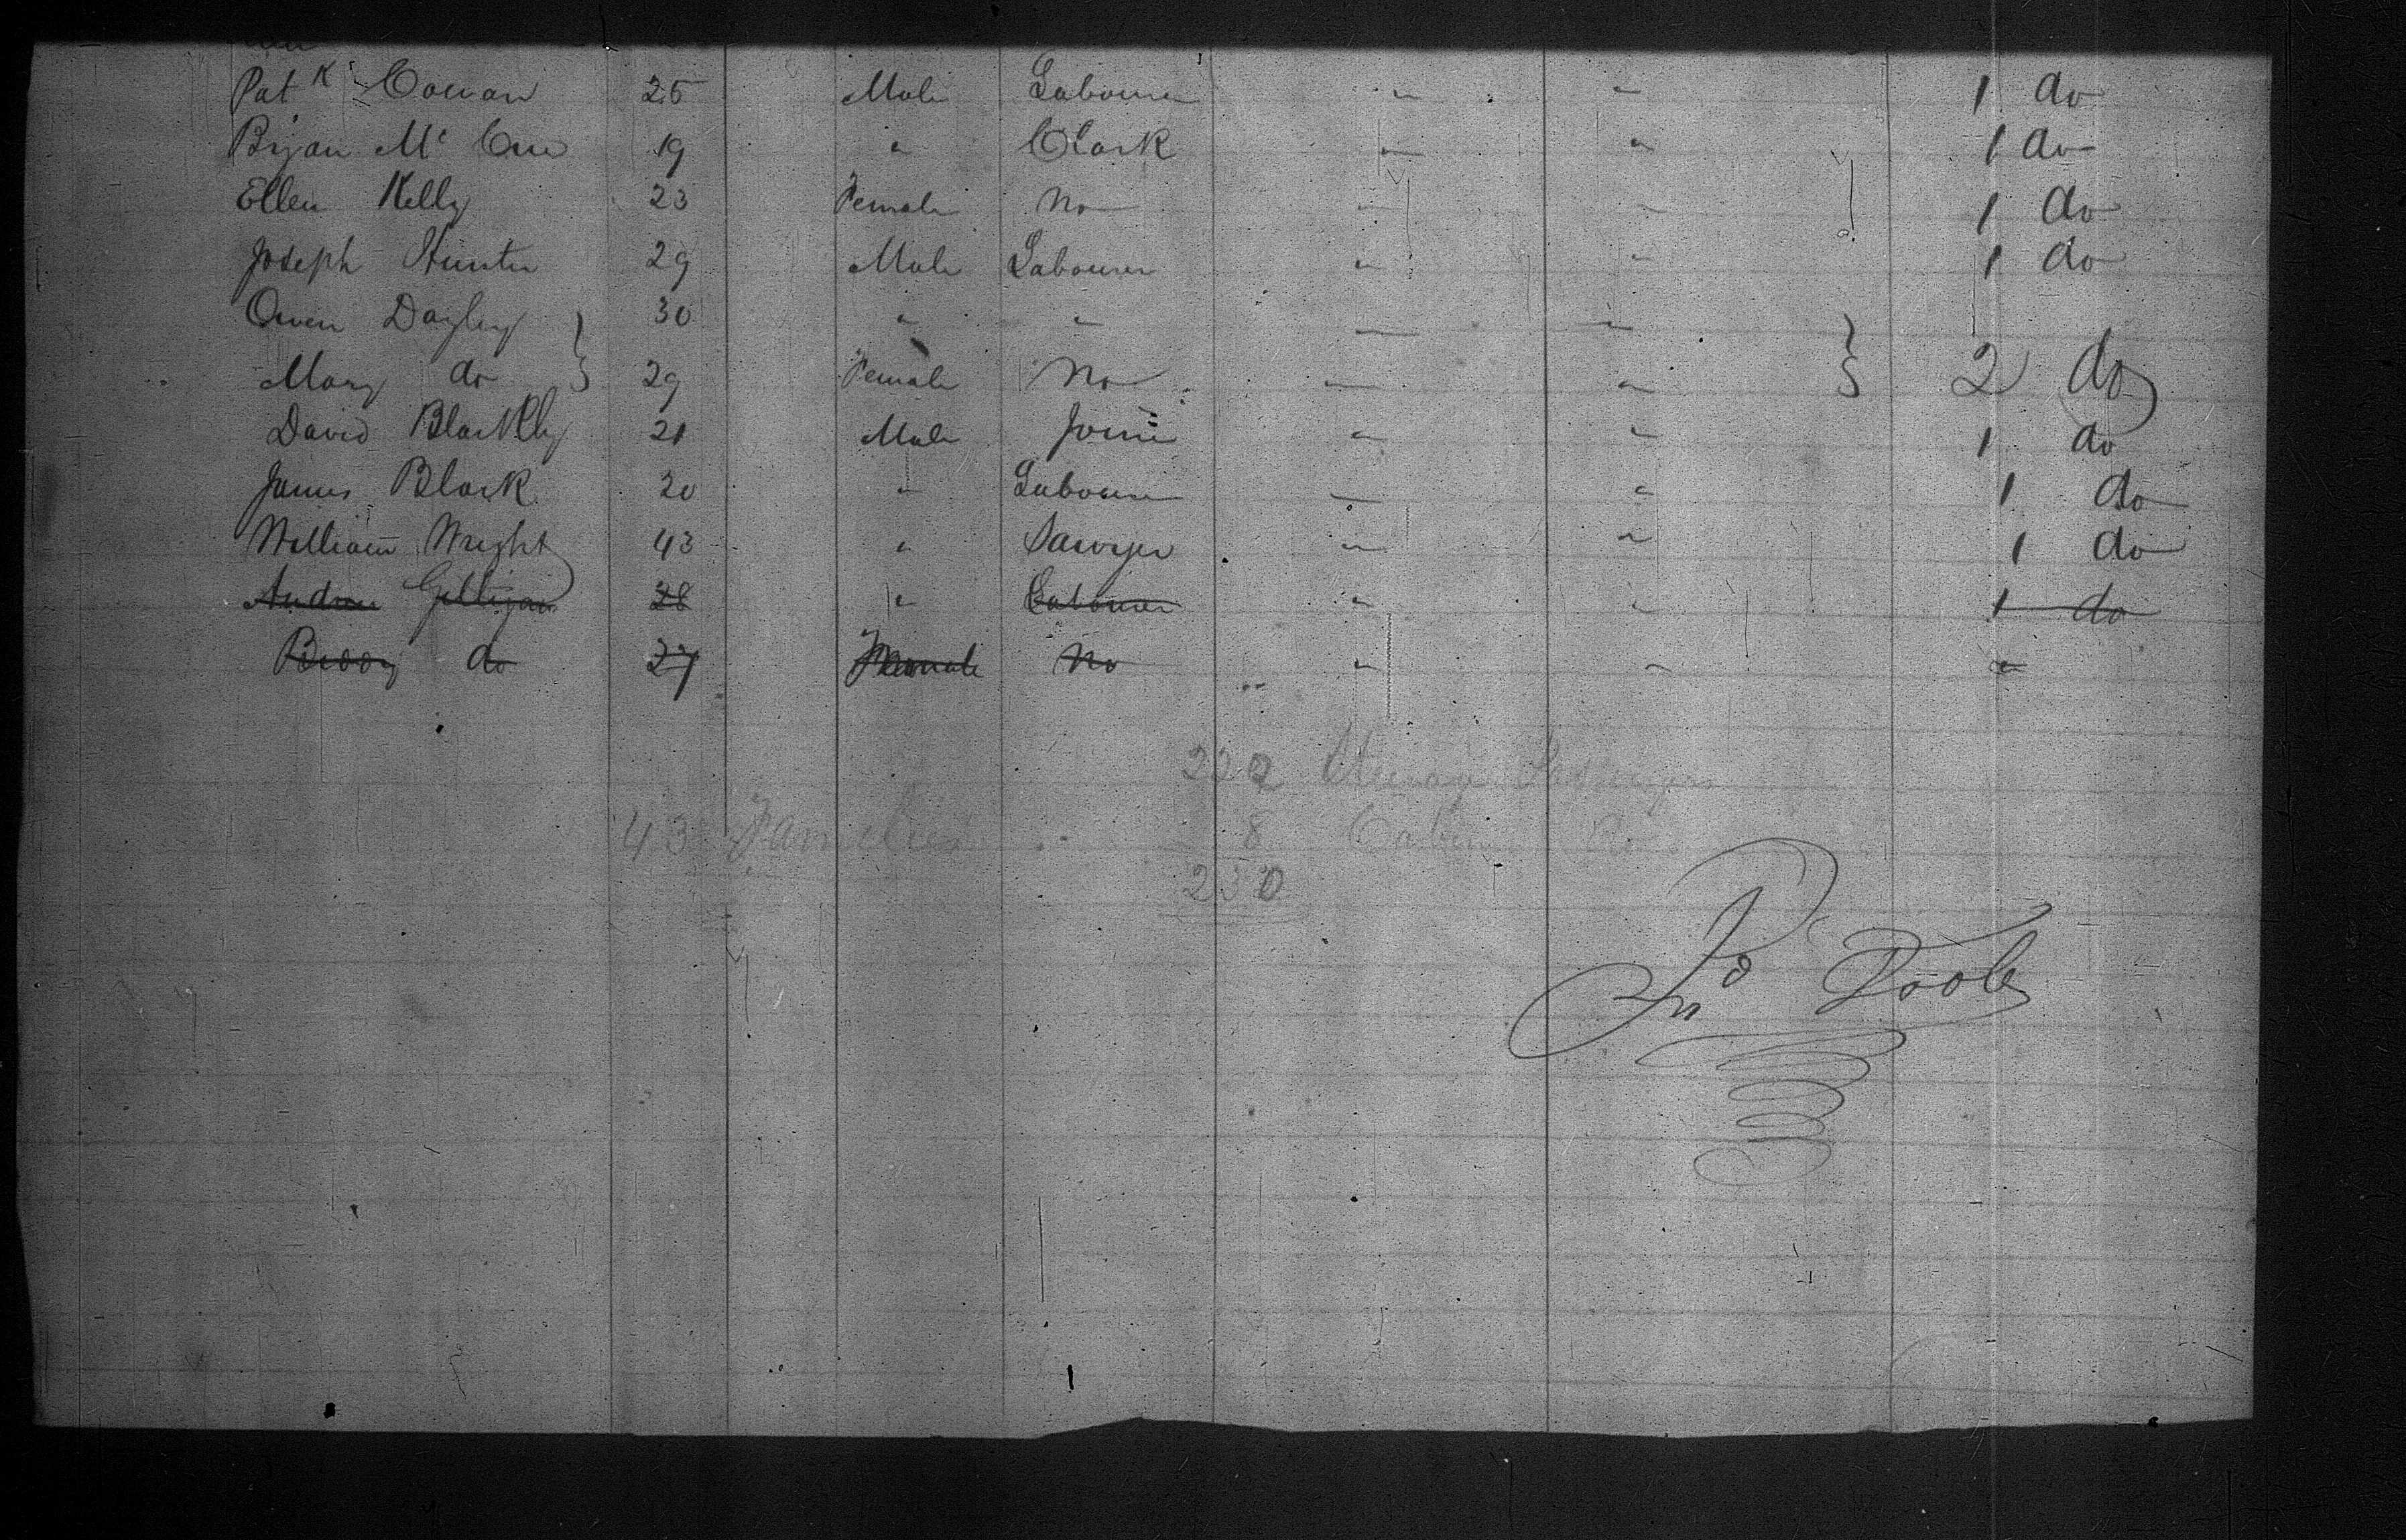 Patk Cowan 25 Male Labourer " " 1 do
Bryan Mc 19 " Clark " " 1 do
Ellen Kelly 23 Female No " " 1 do
Joseph Hunter 29 Male Labourer " " 1 do
Owen Dayley 30 " " " "
Mary do 29 Female No " " 2 do
David Blackly 21 Male Joiner " " 1 do
James Black 20 " Labourer " " 1 do
William Wright 43 " Sawyer " " 1 do
Andrew Gilligan 28 " Labourer " " 1 do
Biddy do 27 Female No " " "
222 Steerage Passengers
43 Families 8 Cabin do
230
Poole